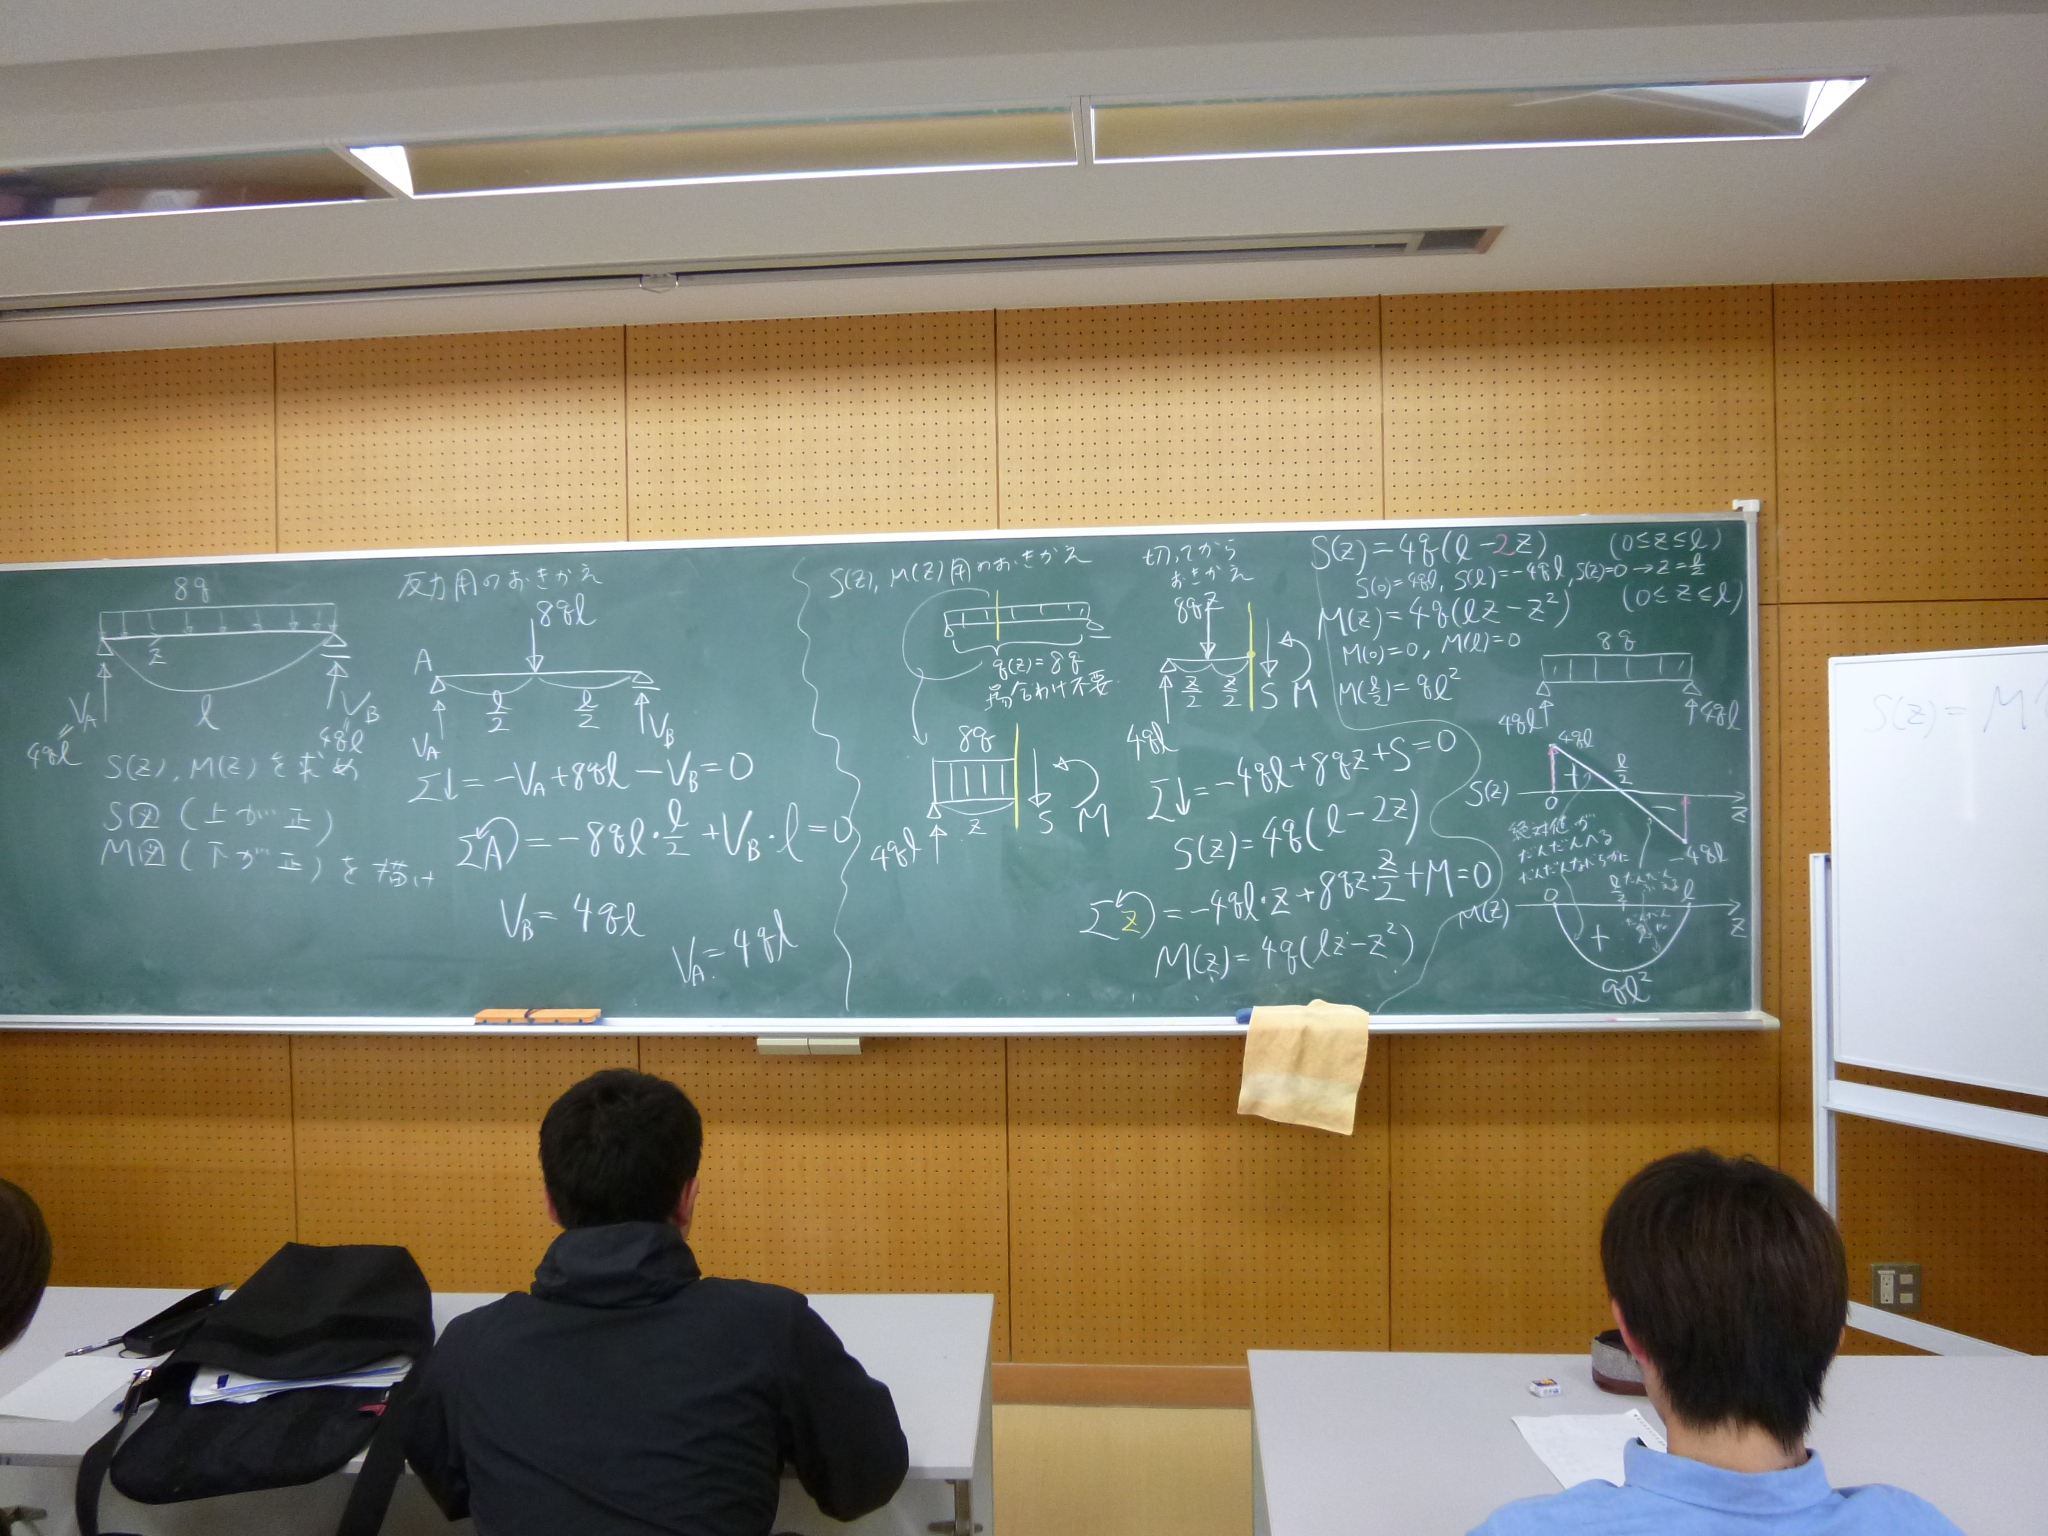 8q
z
l
V_A
4ql
V_B
4ql
S(z), M(z)を求め
S図(上が正)
M図(下が正)を描け
反力用のおきかえ
8ql
A
l/2 l/2
V_A V_B
Σ↓=-V_A+8ql-V_B=0
ΣA=-8ql・l/2+V_B・l=0
V_B=4ql
V_A=4ql
S(z), M(z)用のおきかえ
q(z)=8q
場合わけ不要
8q
z
S M
4ql
切ってから
おきかえ
8qz
z/2 z/2 S M
4ql
Σ↓=-4ql+8qz+S=0
S(z)=4q(l-2z)
Σz=-4ql・z+8qz・z/2+M=0
M(z)=4q(lz-z²)
S(z)=4q(l-2z) (0≤z≤l)
S(0)=4ql, S(l)=-4ql, S(z)=0→z=l/2
M(z)=4q(lz-z²) (0≤z≤l)
M(0)=0, M(l)=0
M(l/2)=ql²
8q
4ql 4ql
4ql
S(z) + l/2 -
0 z
-4ql
絶対値が
だんだんへる
だんだんなだらかに
0 l/2 l
M(z) z
+
ql²
S(z)=M